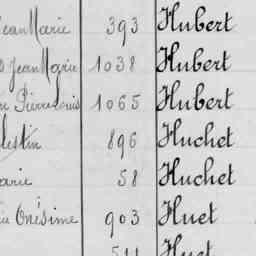 Jean Marie 393 Hubert
Jean Marie 1038 Hubert
Pierre Louis 1065 Hubert
lestin 896 Huchet
arie 58 Huchet
Onésime 903 Huet
511 Huet